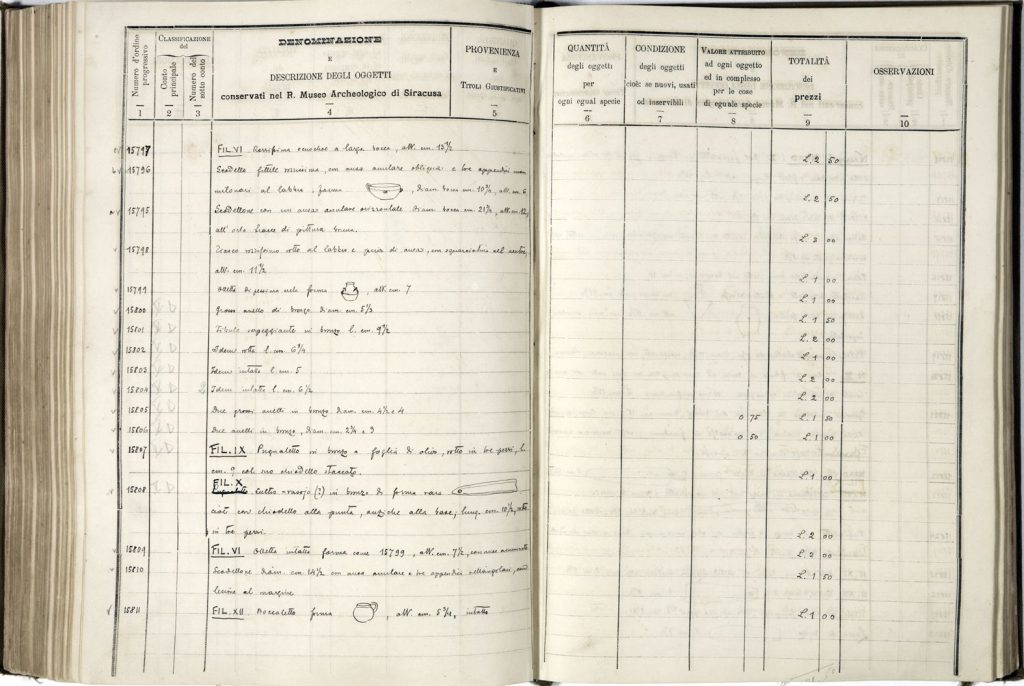 Numero d'ordine progressivo
CLASSIFICAZIONE del
Conto principale
Numero del sotto conto
DENOMINAZIONE
E
DESCRIZIONE DEGLI OGGETTI
conservati nel R. Museo Archeologico di Siracusa
PROVENIENZA
E
TITOLI GIUSTIFICATIVI
QUANTITÀ
degli oggetti
per
ogni egual specie
CONDIZIONE
degli oggetti
cioè: se nuovi, usati
od inservibili
VALORE ATTRIBUITO
ad ogni oggetto
ed in complesso
per le cose
di eguale specie
TOTALITÀ
dei
prezzi
OSSERVAZIONI
1 2 3 4 5 6 7 8 9 10
15797 FIL. VI a larga bocca, alt. cm. 13½ L. 2 50
15796 Scodella fittile con ansa anulare obliqua e tre appendici
al labbro, forma , diam. bocca cm. 10¾, alt. cm. 6 L. 2 50
15795 Scodellone con un'ansa anulare orizzontale diam. bocca cm. 21¼, alt. cm. 12,
all'orlo tracce di pittura bruna. L. 3 00
15798 rotto al labbro e privo di ansa, con nel ventre,
alt. cm. 11½ L. 1 00
15799 Olletta di forma , alt. cm. 7 L. 1 00
15800 Grosso anello di bronzo diam. cm. 5⅓ L. 1 50
15801 Fibula serpeggiante in bronzo l. cm. 9½ L. 2 00
15802 Idem rotta l. cm. 6¾ L. 1 00
15803 Idem intatta l. cm. 5 L. 2 00
15804 2 Idem intatta l. cm. 6½ L. 2 00
15805 Due grossi anelli in bronzo diam. cm. 4½ e 4 0 75 L. 1 50
15806 Due anelli in bronzo, diam. cm. 2¾ e 3 0 50 L. 1 00
15807 FIL. IX Pugnaletto in bronzo a foglia di olivo, rotto in tre pezzi, l.
cm. 9 col suo chiodello staccato. L. 1 00
15808 FIL. X Cultro-rasojo (?) in bronzo di forma
con chiodello alla punta, anziche alla base, lung. cm. 10½, rotto
in tre pezzi. L. 2 00
15809 FIL. VI Olletta intatta forma come 15799, alt. cm. 7½, con anse L. 2 00
15810 Scodellone diam. cm. 14½ con ansa anulare e tre appendici rettangolari,
al margine L. 1 50
15811 FIL. XII Boccaletto forma , alt. cm. 5¾, intatto L. 1 00